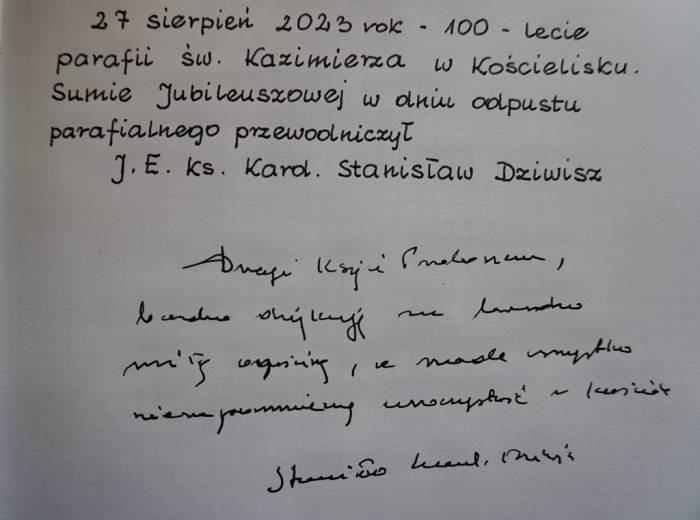 27 sierpień 2023 rok - 100 - lecie
parafii św. Kazimierza w Kościelisku.
Sumie Jubileuszowej w dniu odpustu
parafialnego przewodniczył
J. E. ks. Kard. Stanisław Dziwisz
Drogi Księże
bardzo dziękuję za bardzo
miłą
niezapomnianą uroczystość w
Stanisław kard. Dziwisz